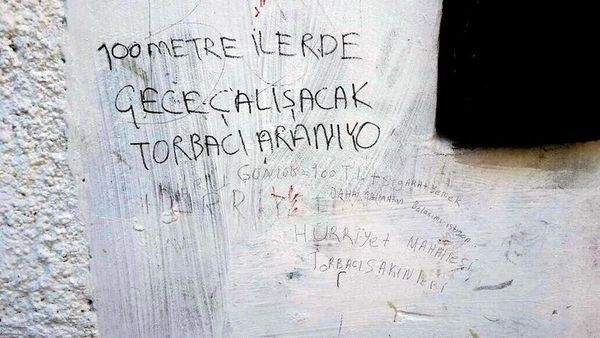 100 METRE İLERDE
GECE ÇALIŞACAK
TORBACI ARANIYO
GÜNLÜK = 100 TL + sigara + yemek
HÜRRİYET MAHALESİ
TORBACI SAKINLERİ